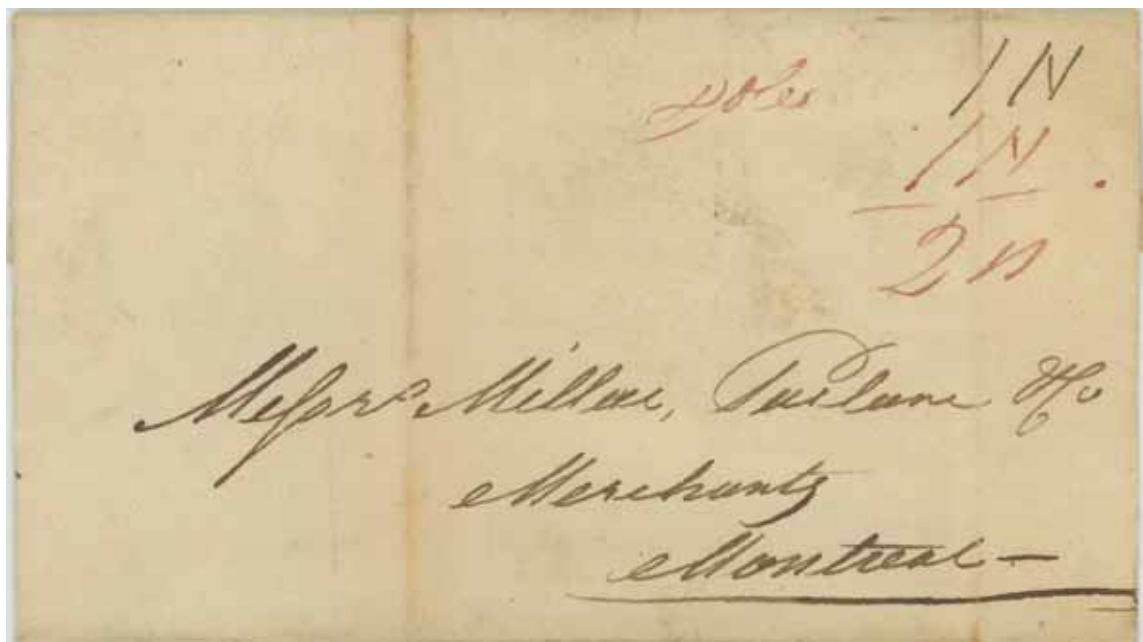 1 N
1 N
2 N
Messrs Millar, Parlane & Co
Merchants
Montreal